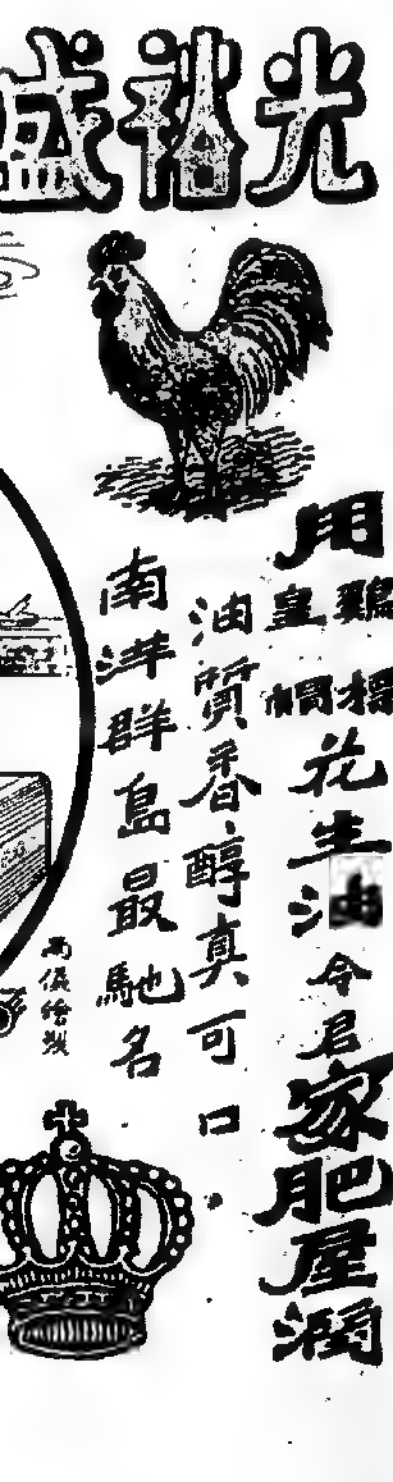 光裕盛
用鷄標皇帽花生油令君家肥屋潤
油質香醇真可口
南洋群島最馳名